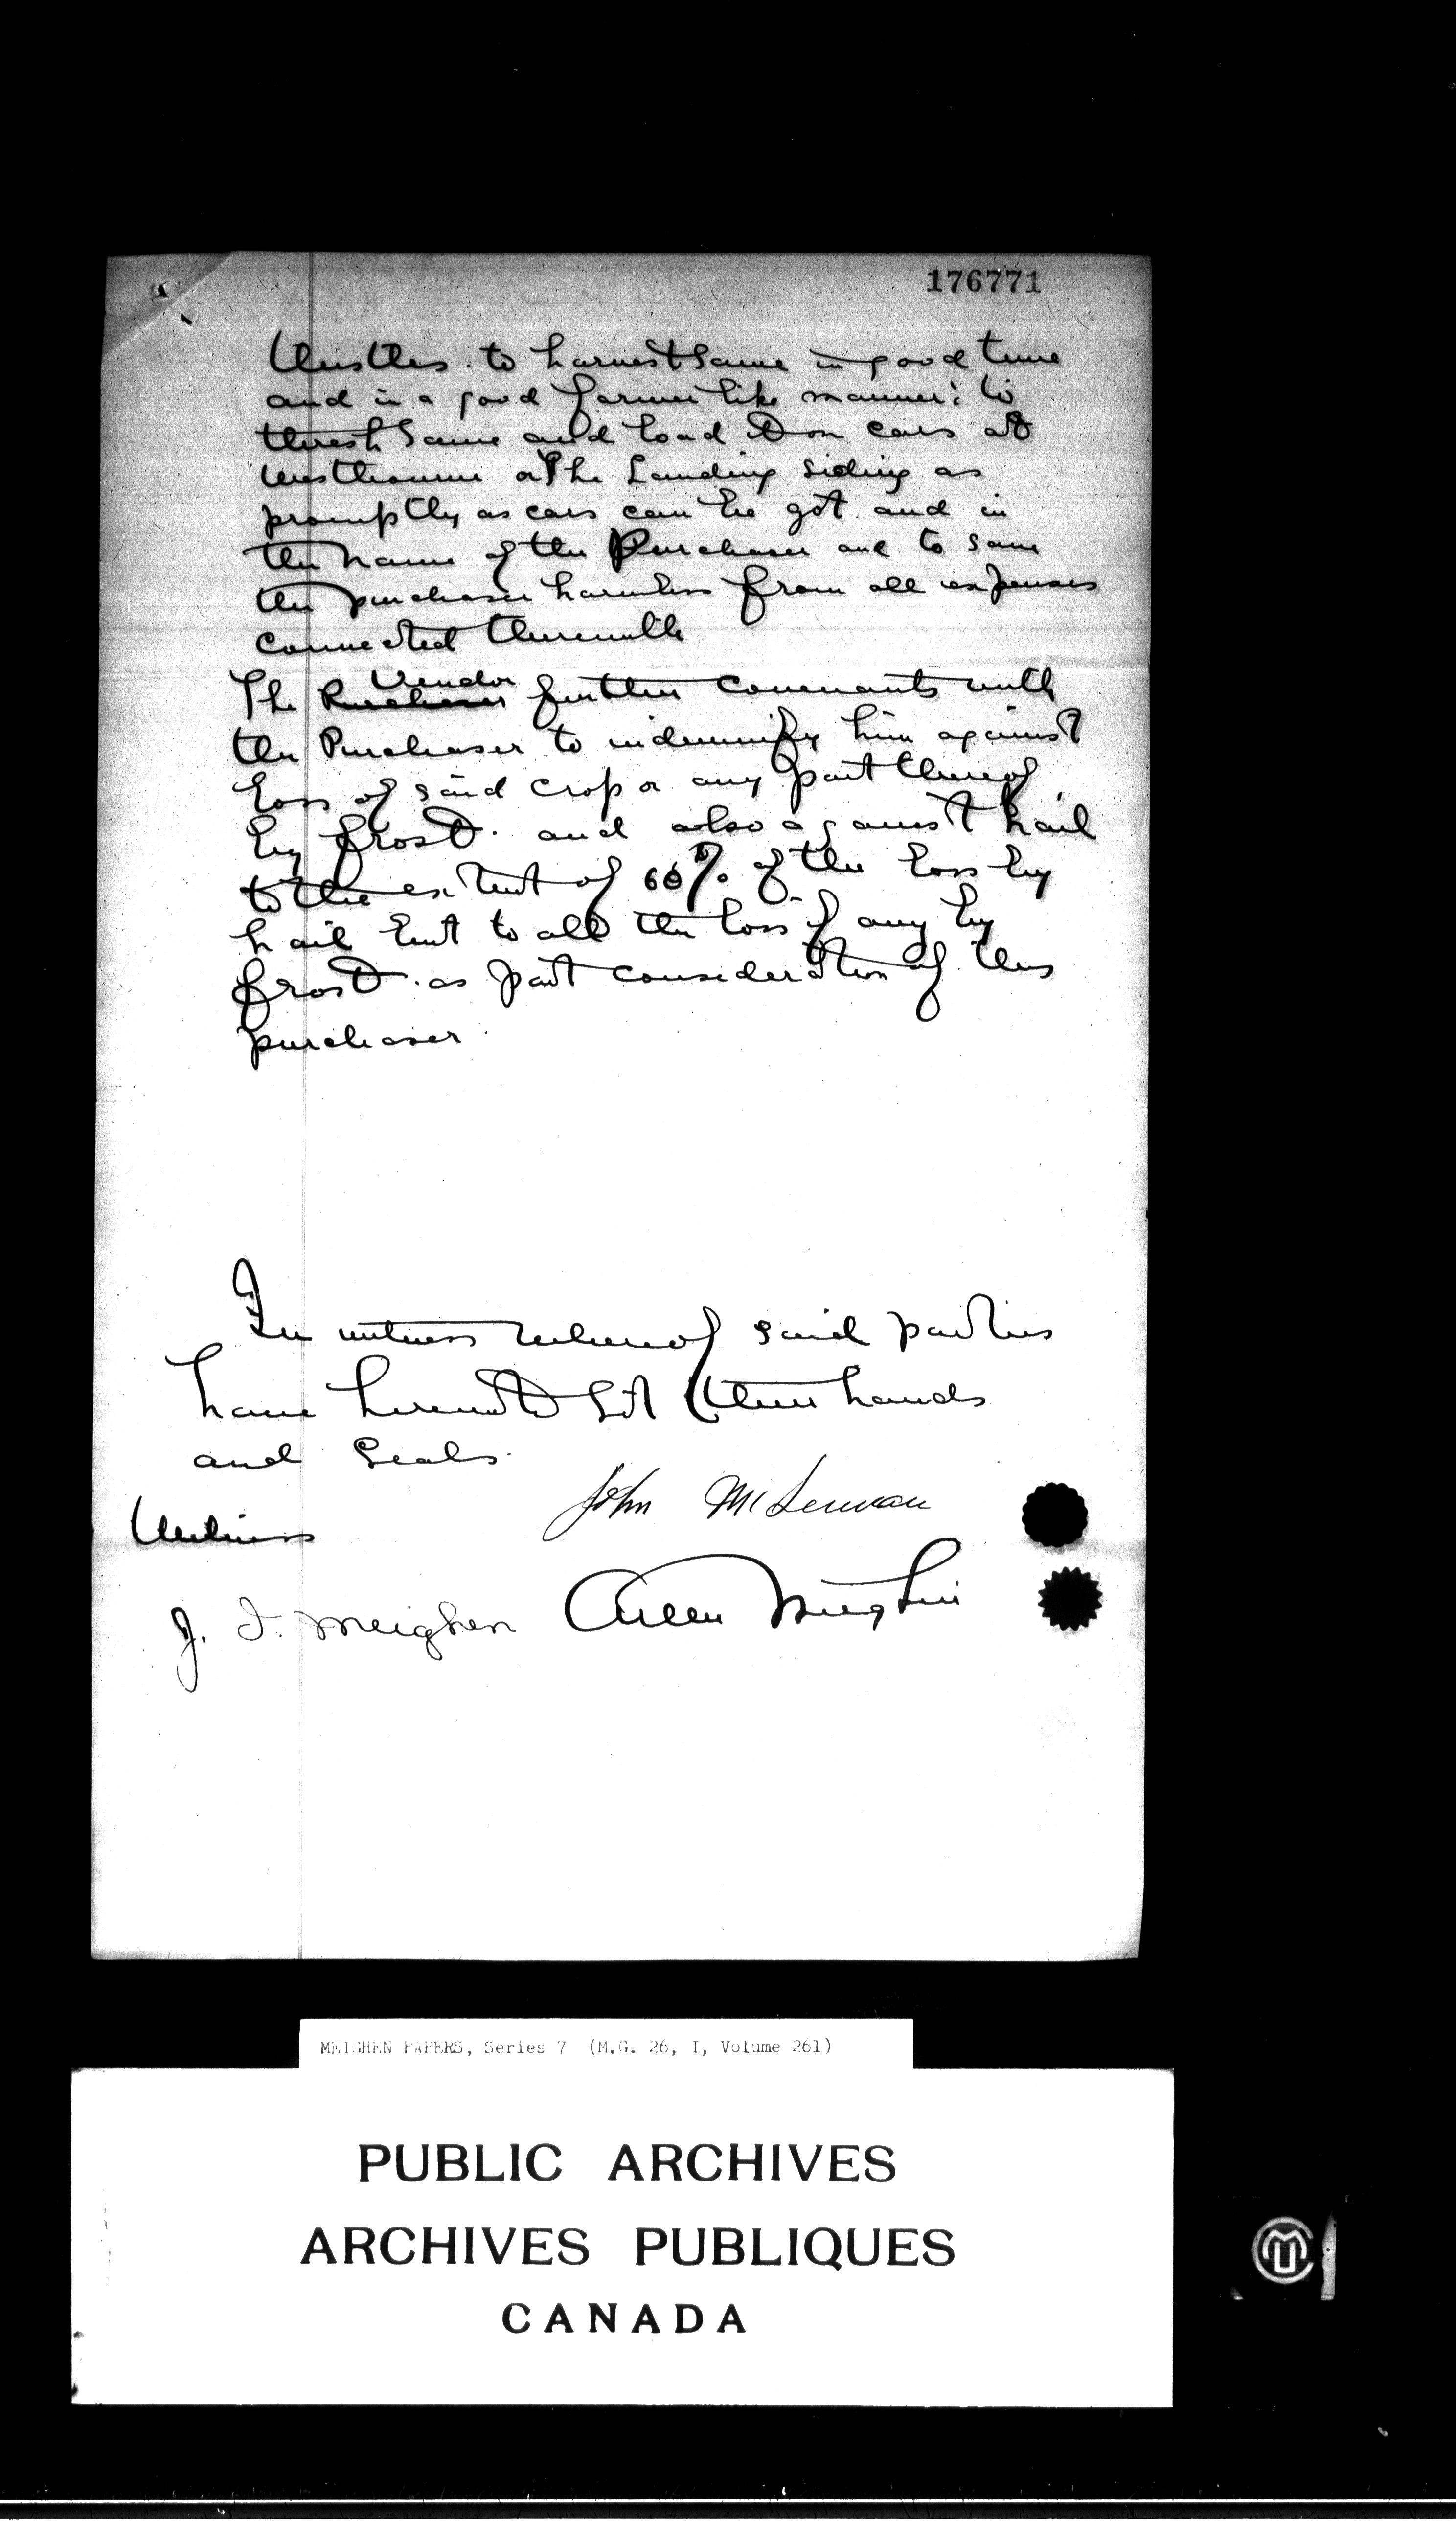 176771
thistles. to harvest same in good time
and in a good farmer like manner: to
thresh same and load it on cars at
Westbourne or the Landing siding as
promptly as cars can be got. and in
the name of the Purchaser and to save
the purchaser harmless from all expenses
connected therewith
Vendor
The Purchaser further covenants with
the Purchaser to indemnify him against
loss of said crop or any part thereof
by frost. and also against hail
to the extent of 60% of the loss by
hail but to all the loss if any by
frost. as part consideration of this
purchaser.
In witness whereof said parties
have hereunto set their hands
and seals.
John McLennan
Witness
J. J. Meighen Arthur Meighen
MEIGHEN PAPERS, Series 7 (M.G. 26, I, Volume 261)
PUBLIC ARCHIVES
ARCHIVES PUBLIQUES
CANADA